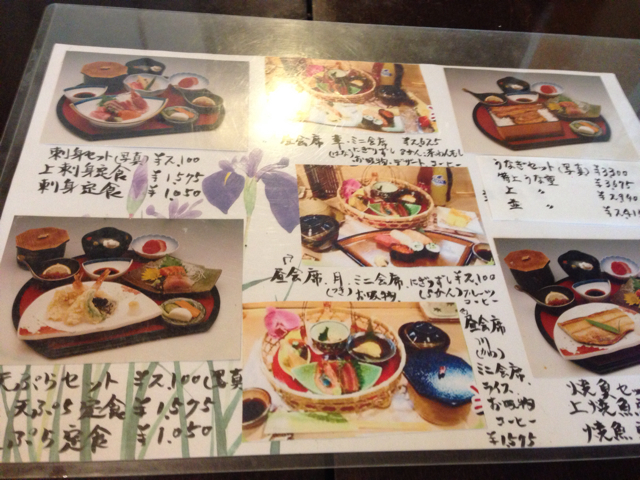 刺身セット(写真)¥2,100
上刺身定食 ¥1,575
刺身定食 ¥1,050
天ぷらセット ¥2,100(写真
天ぷら定食 ¥1,575
天ぷら定食 ¥1,050
昼会席 ミニ会席 ¥2,625
にぎりずし 茶わんむし
お吸物・デザート コーヒー
昼会席 月 ミニ会席、にぎりずし ¥2,100
(つき) お吸物 フルーツ
コーヒー
昼会席
川
ミニ会席
ライス、
お吸物
コーヒー
¥1,575
うなぎセット(写真)¥3300
特上うな重
上 〃
並 〃
焼魚セッ
上焼魚
焼魚